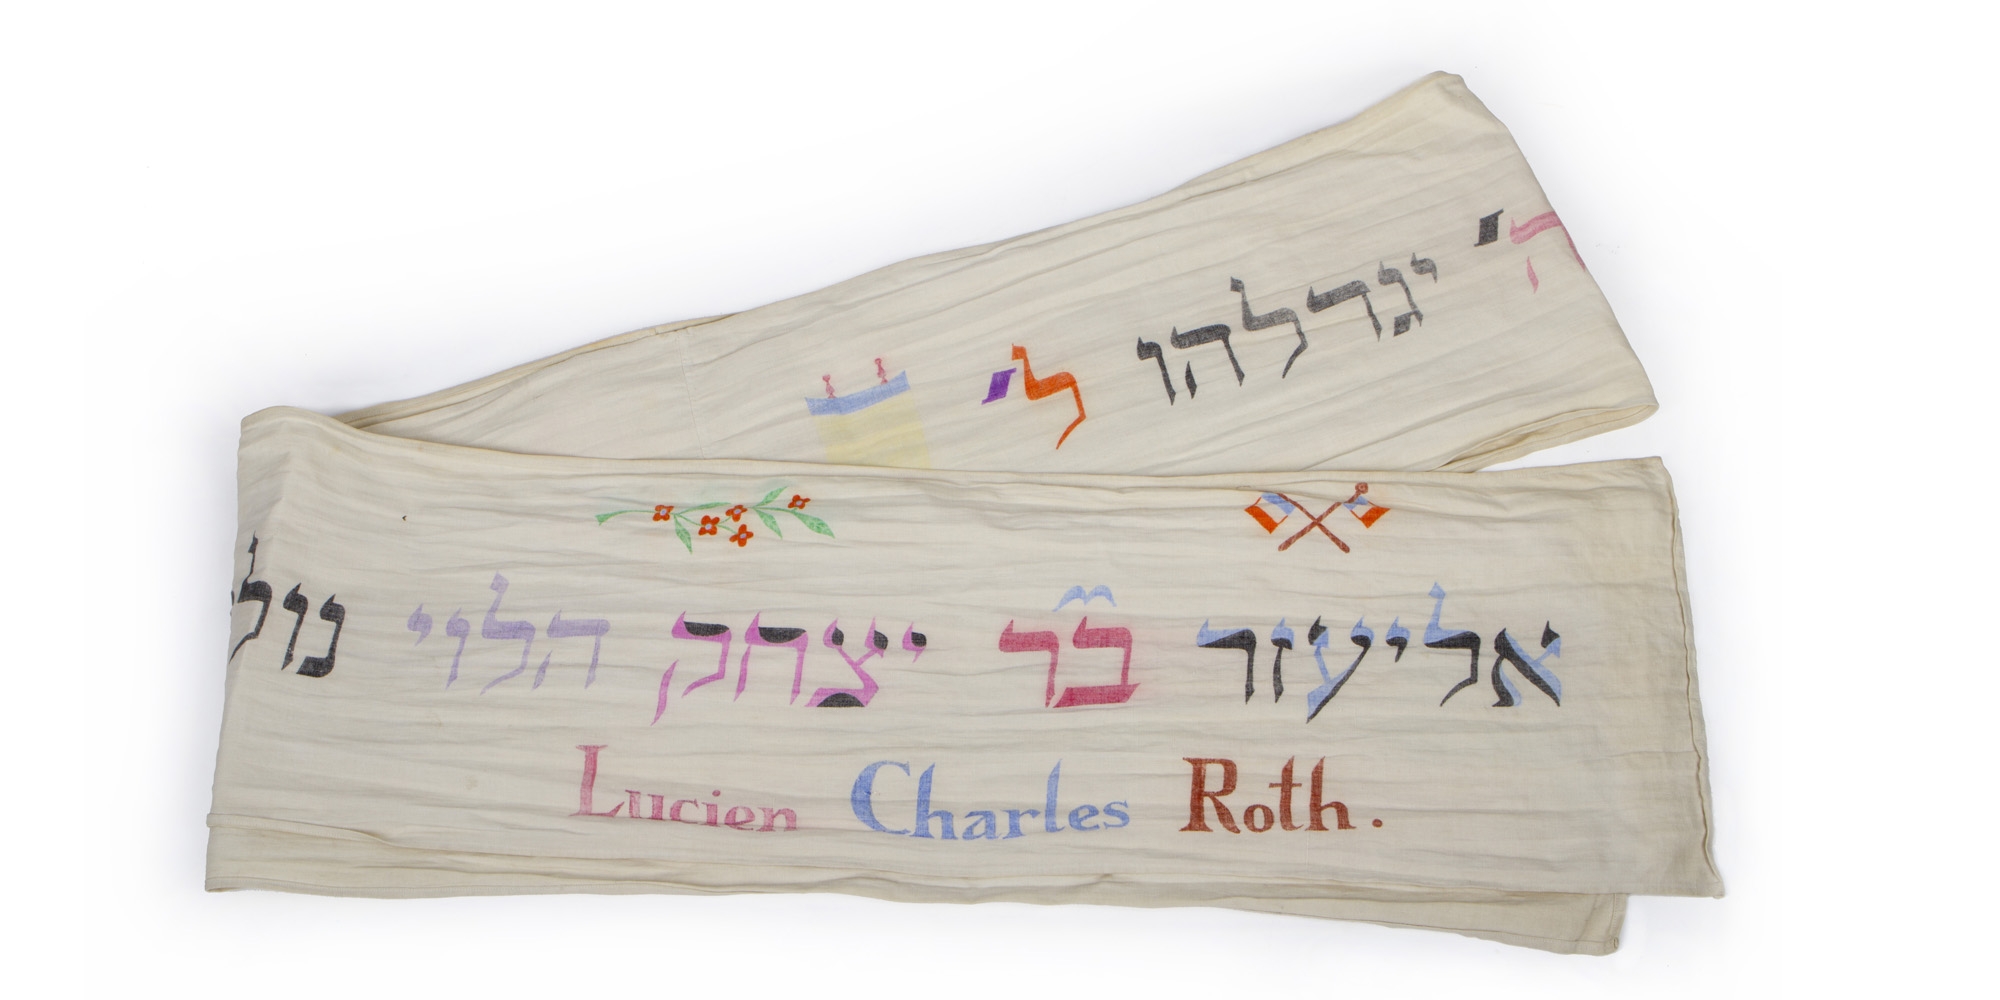 ה' יגדלהו ל'
אליעזר בר יצחק הלוי נול
Lucien Charles Roth.